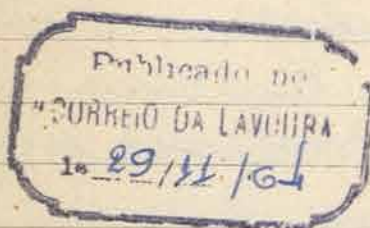 Publicado no
"CORREIO DA LAVOURA
de 29/11/64